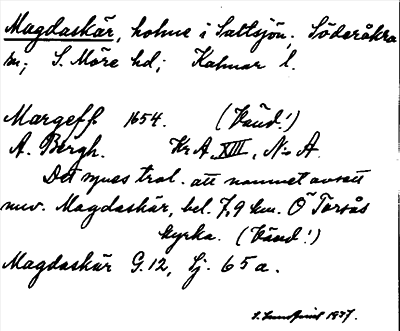 Magdaskär, holme i Saltsjön; Söderåkra
sn; S. Möre hd; Kalmar l.
Margeff 1654. (Vänd!)
A. Bergh. Kr A, XIII, N:o A.
Det synes trol. att namnet avsett
nuv. Magdaskär, bel. 7,9 km. Ö Torsås
kyrka. (Vänd!)
Magdaskär G. 12, Lj. 65 a.
1937.